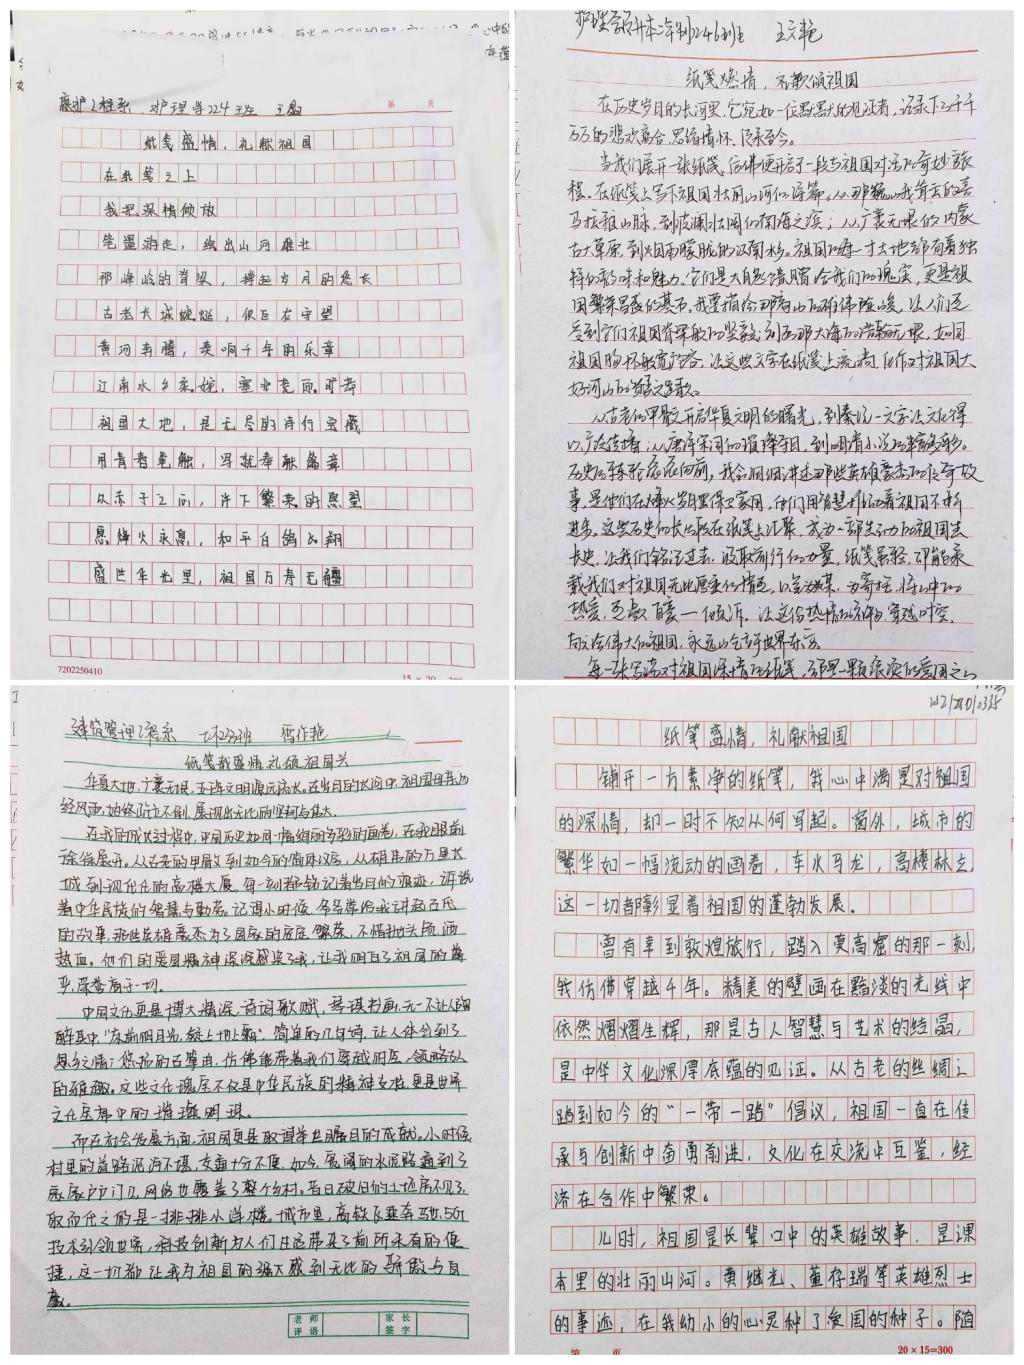 康护工程系 护理学224班 王
第 页
纸笔盛情，礼献祖国
在纸笔之上
我把深情倾放
笔墨游走，绘出山河雄壮
那峰岭的脊梁，撑起岁月的悠长
古老长城蜿蜒，似巨在守望
黄河奔腾，奏响千年的乐章
江南水乡柔婉，塞北苍 旷
祖国大地，是无尽的诗行宝藏
用青春笔触，写就奉献篇章
以赤子之 ，许下繁荣的愿望
愿烽火永息，和平白鸽 翔
盛世华光里，祖国万寿无疆
7202250410
15×20=300
护理学院 246班 王 艳
纸笔 情， 献 祖国
在历史岁月的长河里，它宛如一位默默的见证者，记录下了千千
万万的悲欢离合、思绪情怀、
当我们展开一张纸笔，仿佛便开启了一段与祖国对话的奇妙旅
程。在纸笔上写下祖国壮丽山河的诗篇，从那巍峨耸云的喜
马拉雅山脉，到波澜壮阔的南海之滨；从广袤无垠的内蒙
古大草原，到烟雨朦胧的江南水乡。祖国的每一寸土地都有着独
特的韵味和魅力。它们是大自然馈赠给我们的瑰宝，更是祖
国繁荣昌盛的基石。我要描绘那高山的雄伟险峻，让人们感
受到它们如祖国脊梁般的坚毅；刻画那大海的浩瀚无垠，如同
祖国胸怀般宽容。让这些文字在纸笔上流淌，化作对祖国大
好河山的 赞歌。
从古老的甲骨文开启华夏文明的曙光，到秦统一文字让文化得
以广泛传播，从唐诗宋词的璀璨夺目，到明清小说的丰富多彩。
历史的车轮滚滚向前，我会细细讲述那些英雄豪杰的传奇故
事，是他们在烽火岁月里保卫家国，他们用智慧推动着祖国不断
进步。这些历史的长 在纸笔上汇聚，成为一部生动的祖国成
长史，让我们铭记过去，汲取前行的力量，纸笔虽轻，却能承
载我们对祖国无比厚重的情感，以笔为媒，为寄托，将心中的
热爱，感激 一一倾诉。让这份热情 穿越时空，
献给伟大的祖国，永远屹立于世界东方。
每一张写满对祖国深情的纸笔，都是一颗滚烫的爱国之心
建筑管理工程系 233班 艳
纸笔载盛情礼颂祖国兴
华夏大地，广袤无垠，五千年文明源远流长。在岁月的长河中，祖国母亲历
经风雨，始终屹立不倒，展现出无比的坚韧与伟大。
在我的成长过程中，中国历史如同一幅绚丽多彩的画卷，在我眼前
徐徐展开。从古老的甲骨文到如今的简体汉字，从雄伟的万里长
城到现代化的高楼大厦，每一刻都铭记着岁月的痕迹，诉说
着中华民族的智慧与勤劳。记得小时候，爷爷常给我讲起古代
的故事，那些英雄豪杰为了国家的安定繁荣，不惜抛头颅、洒
热血。他们的爱国精神深深感染了我，让我明白了祖国的尊
严，荣誉高于一切。
中国文化更是博大精深，诗词歌赋，琴棋书画，无一不让人陶
醉其中“床前明月光，疑是地上霜”，简单的几句诗，让人体会到了
思乡之情；悠扬的古筝曲，仿佛能带着我们穿越时空，领略古人
的雅趣。这些文化瑰宝不仅是中华民族的精神支柱，更是世界
文化宝库中的璀璨明珠。
而在社会发展方面，祖国更是取得举世瞩目的成就。小时候
村里的道路泥泞不堪，交通十分不便，如今，宽阔的水泥路通到了
家家户户门口，网络也覆盖了整个乡村。昔日破旧的土坯房不见了，
取而代之的是一排排小洋楼。城市里，高铁飞驰奔驰，5G
技术引领世界，科技创新为人们生活带来了前所未有的便
捷，这一切都让我为祖国的强大感到无比的骄傲与自
豪。
老师评语
家长签字
纸笔盛情，礼献祖国
铺开一方素净的纸笔，我心中满是对祖国
的深情，却一时不知从何写起。窗外，城市的
繁华如一幅流动的画卷，车水马龙，高楼林立，
这一切都彰显着祖国的蓬勃发展。
曾有幸到敦煌旅行，踏入莫高窟的那一刻，
我仿佛穿越千年。精美的壁画在黯淡的光线中
依然熠熠生辉，那是古人智慧与艺术的结晶，
是中华文化深厚底蕴的见证。从古老的丝绸之
路到如今的“一带一路”倡议，祖国一直在传
承与创新中奋勇前进，文化在交流中互鉴，经
济在合作中繁荣。
儿时，祖国是长辈口中的英雄故事，是课
本里的壮丽山河。黄继光、董存瑞等英雄烈士
的事迹，在我幼小的心灵种下了爱国的种子。随
第 页
20×15=300